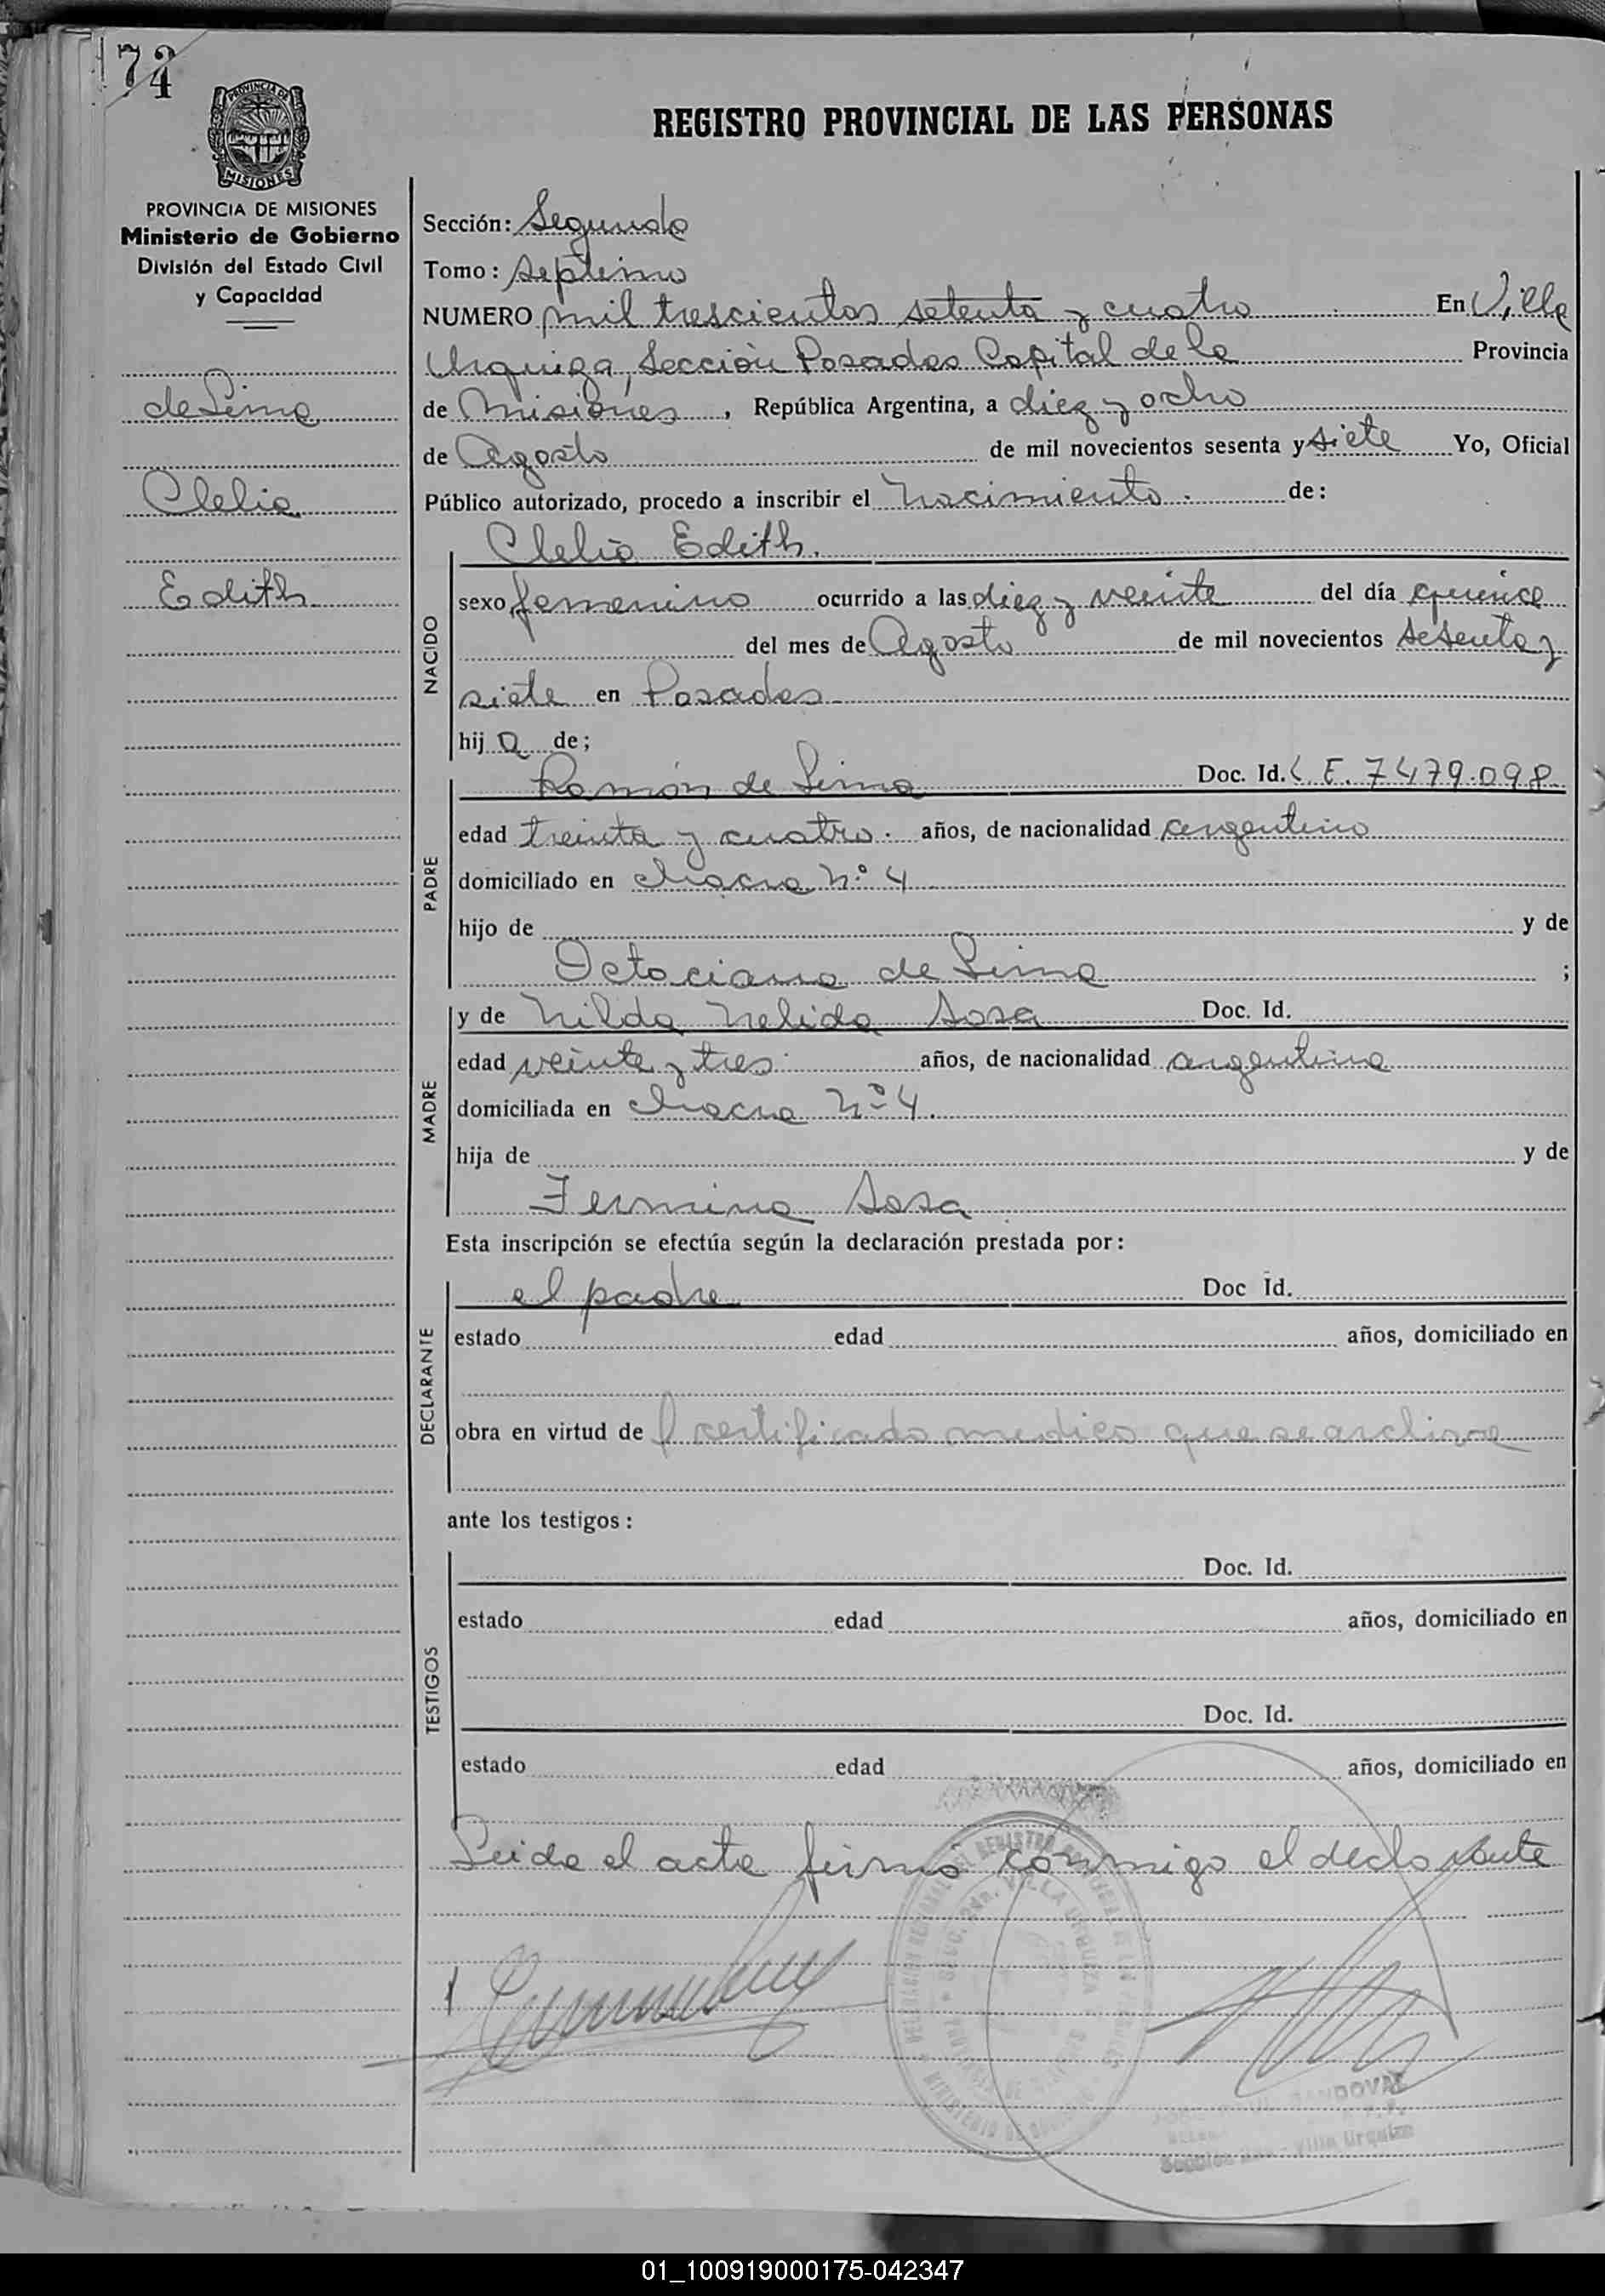 174
REGISTRO PROVINCIAL DE LAS PERSONAS
PROVINCIA DE MISIONES
MISIONES
PROVINCIA DE MISIONES
Ministerio de Gobierno
División del Estado Civil
y Capacidad
de Lima
Clelia
Edith
Sección: Segunda
Tomo: Septimo
NUMERO mil trescientos setenta y cuatro En Villa
Urquiza, Sección Posadas Capital de la Provincia
de Misiones, República Argentina, a diez y ocho
de Agosto de mil novecientos sesenta y siete Yo, Oficial
Público autorizado, procedo a inscribir el Nacimiento. de:
Clelia Edith.
NACIDO
sexo femenino ocurrido a las diez y veinte del día quince
del mes de Agosto de mil novecientos sesenta y
siete en Posadas
hija de;
PADRE
Ramón de Lima Doc. Id. L.E. 7479.098
edad treinta y cuatro. años, de nacionalidad argentino
domiciliado en chacra N° 4
hijo de y de
Octaciana de Lima ;
MADRE
y de Nilda Nelida Sosa Doc. Id.
edad veinte y tres años, de nacionalidad argentina
domiciliada en chacra N° 4.
hija de y de
Fermina Sosa
Esta inscripción se efectúa según la declaración prestada por:
DECLARANTE
el padre Doc Id.
estado edad años, domiciliado en
obra en virtud de l certificado medico que se archiva
ante los testigos:
TESTIGOS
Doc. Id.
estado edad años, domiciliado en
Doc. Id.
estado edad años, domiciliado en
Leida el acta firma conmigo el declarante
VILLA URQUIZA
SANDOVAL
Villa Urquiza
01_100919000175-042347